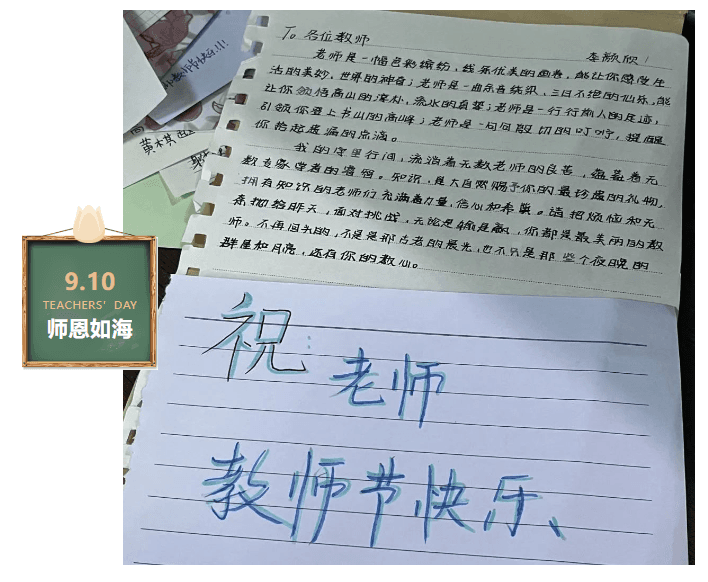 教师节快乐!!!
To 各位教师
李颖欣
老师是一幅色彩缤纷,线条优美的画卷,能让你感受生
活的美妙,世界的神奇;老师是一曲余音绕梁,三日不绝的仙乐,能
让你领悟高山的深处,流水的真挚;老师是一行行旅人的足迹,
引领你登上书山的高峰;老师是一句句殷切的叮咛,提醒
你拾起遗漏的点滴。
我的字里行间,流淌着无数老师的良善,蕴
知识,是大自然赐予你的最珍贵的礼物,
拥有知识的老师们充满着力量,信心和希冀。请把烦恼和无
奈抛给昨天,面对挑战,无论是输是赢,你都是最美丽的教
师。不再回头的,不只是那古老的晨光,也不只是那些个夜晚的
群星和月亮,还有你的教心。
9.10
TEACHERS' DAY
师恩如海
祝:
老师
教师节快乐、